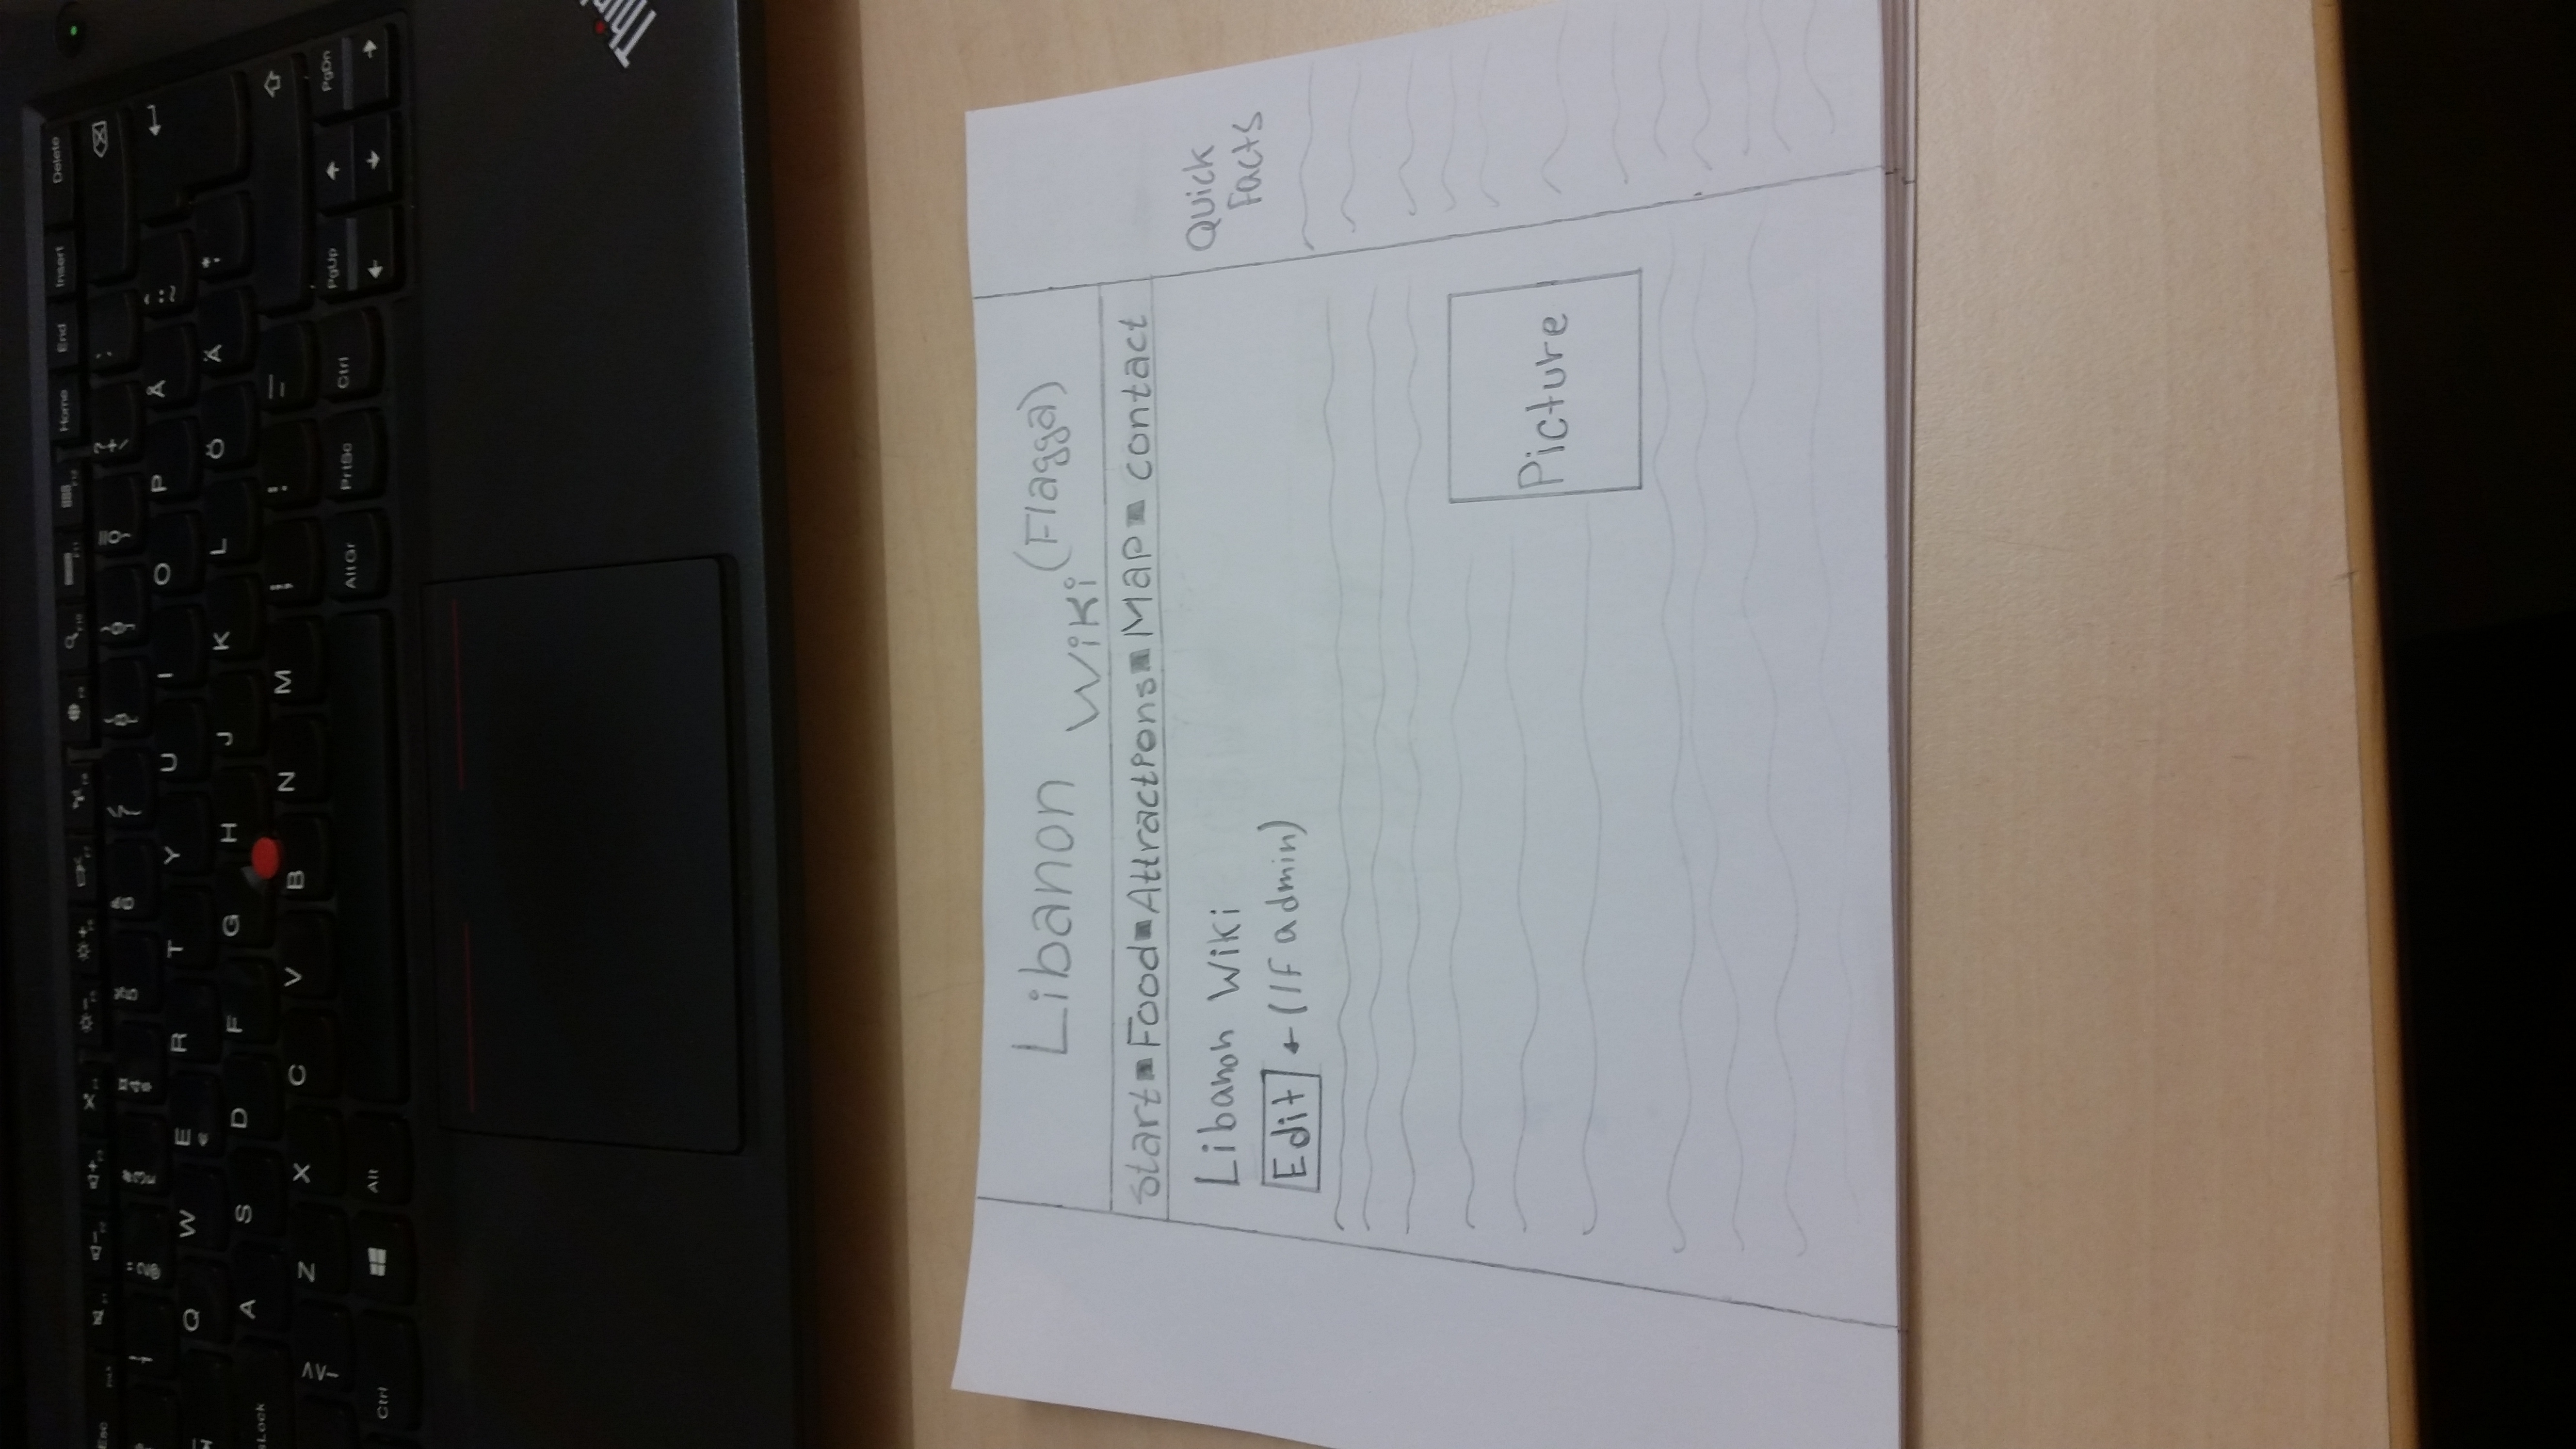 Esc FnLk F1 F2 F3 F4 F5 F6 F7 F8 F9 F10 F11 F12 Home End Insert Delete
Q W E R T Y U I O P Å
€
sLock A S D F G H J K L Ö Ä
Z X C V B N M
Ctrl Alt Alt Gr PrtSc Ctrl PgUp PgDn
Thin
Libanon Wiki (Flagga)
Start Food Attractions Map contact
Libanon Wiki
Edit ← (If admin)
Picture
Quick
Facts